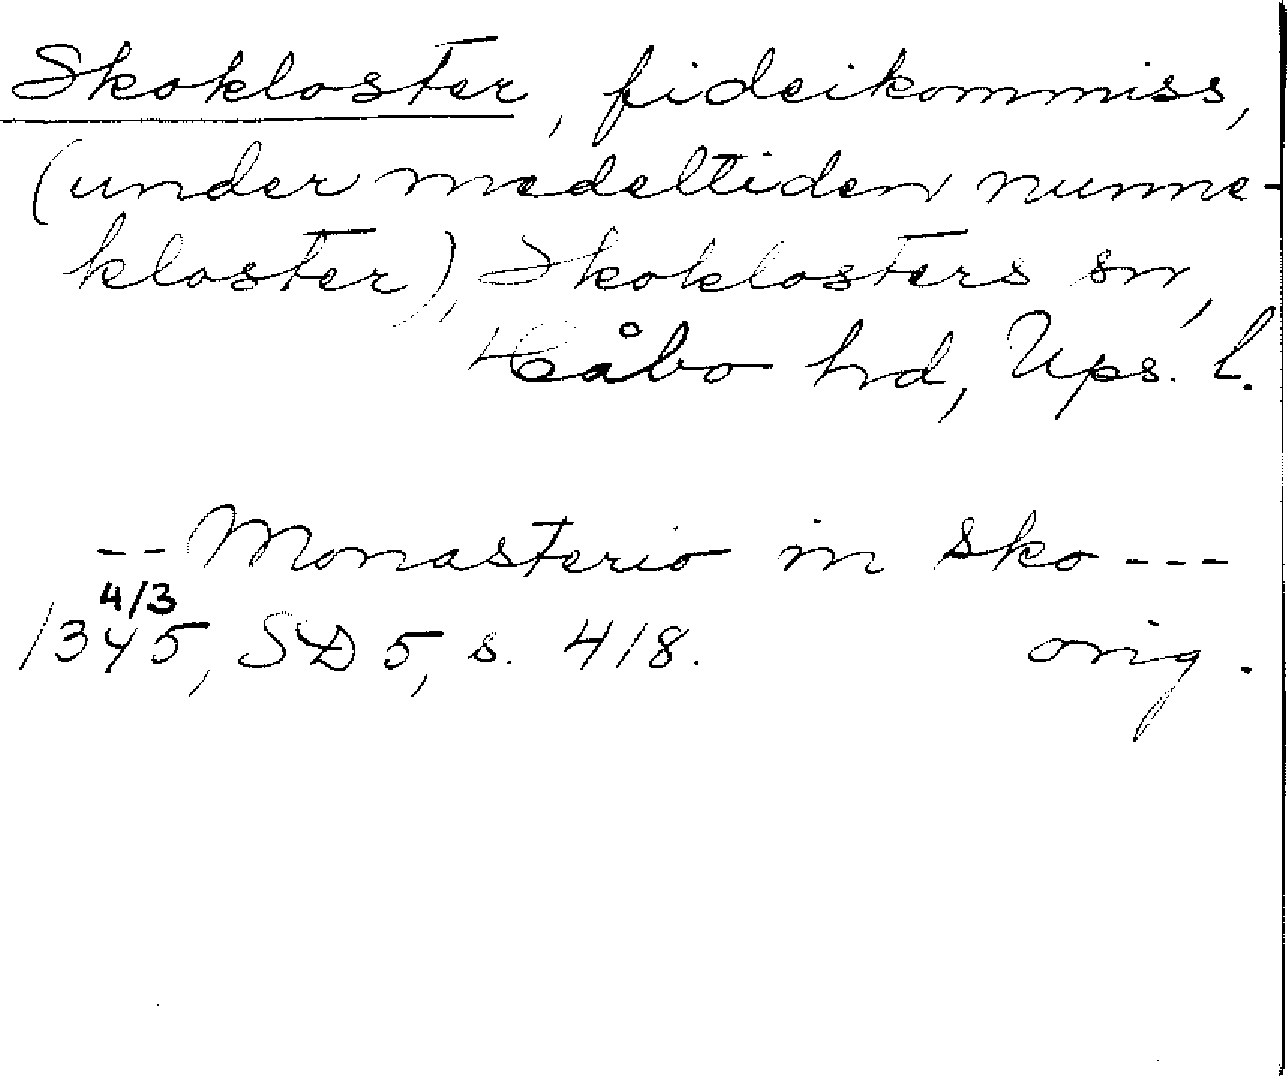 Skokloster, fideikommiss,
(under medeltiden nunne-
kloster), Skoklosters sn,
Håbo hd, Ups. l.
-- Monasterio in Sko ---
4/3
1345, SD 5, s. 418. orig.